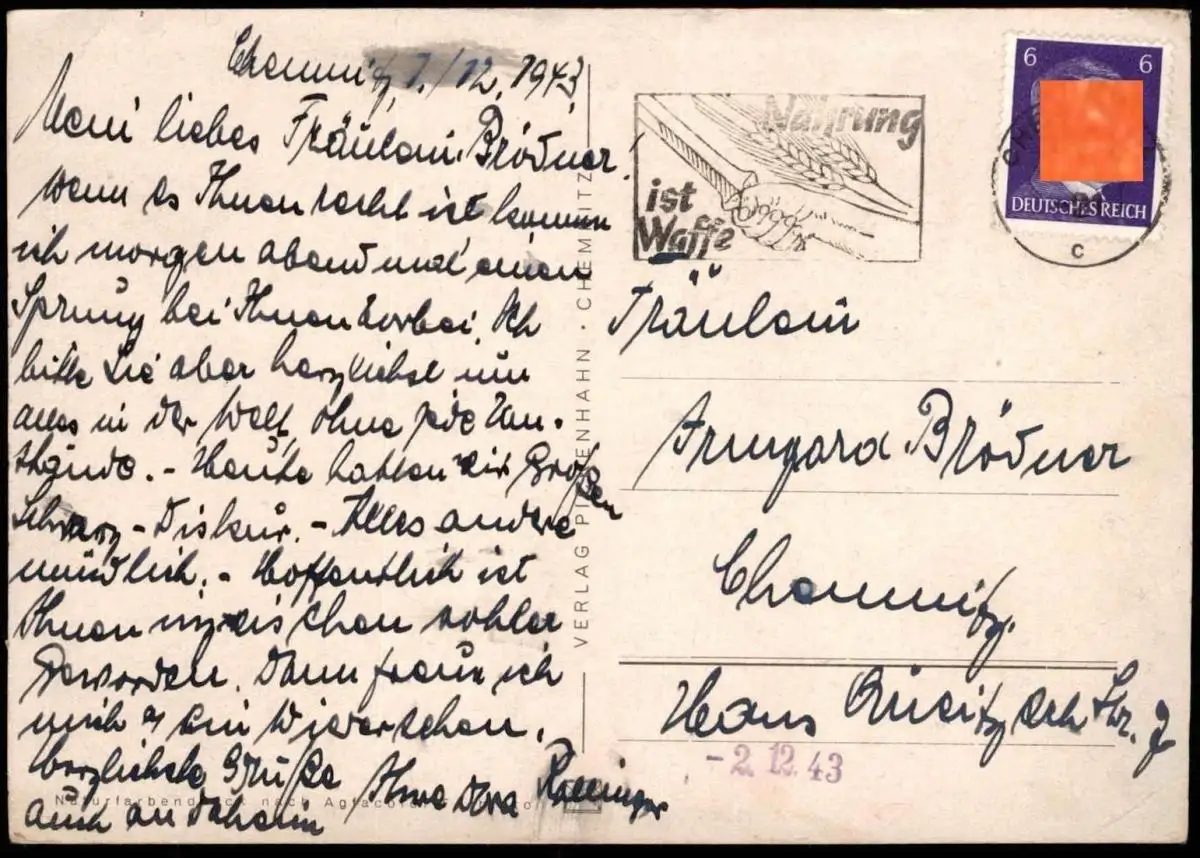 Chemnitz, 1./12. 1943.
Mein liebes Fräulein Brödner,
wenn es Ihnen recht ist komme
ich morgen abend mal einen
Sprung bei Ihnen vorbei. Ich
bitte Sie aber herzlichst um
alles in der Welt, ohne jede Um-
stände. - Heute hatten wir Großen
Schwarz - Diskur. - Alles andere
mündlich. - Hoffentlich ist
Ihnen inzwischen wohler
geworden. Dann freue ich
mich auf ein Wiedersehen.
Herzlichste Grüße Ihre Dora
auch an Daheim
Naturfarbendruck nach Agfacolor
VERLAG PICKENHAHN · CHEMNITZ
Nahrung
ist
Waffe
6 6
DEUTSCHES REICH
c
Fräulein
Armgard Brödner
Chemnitz.
Hans Str. 7
- 2. 12. 43